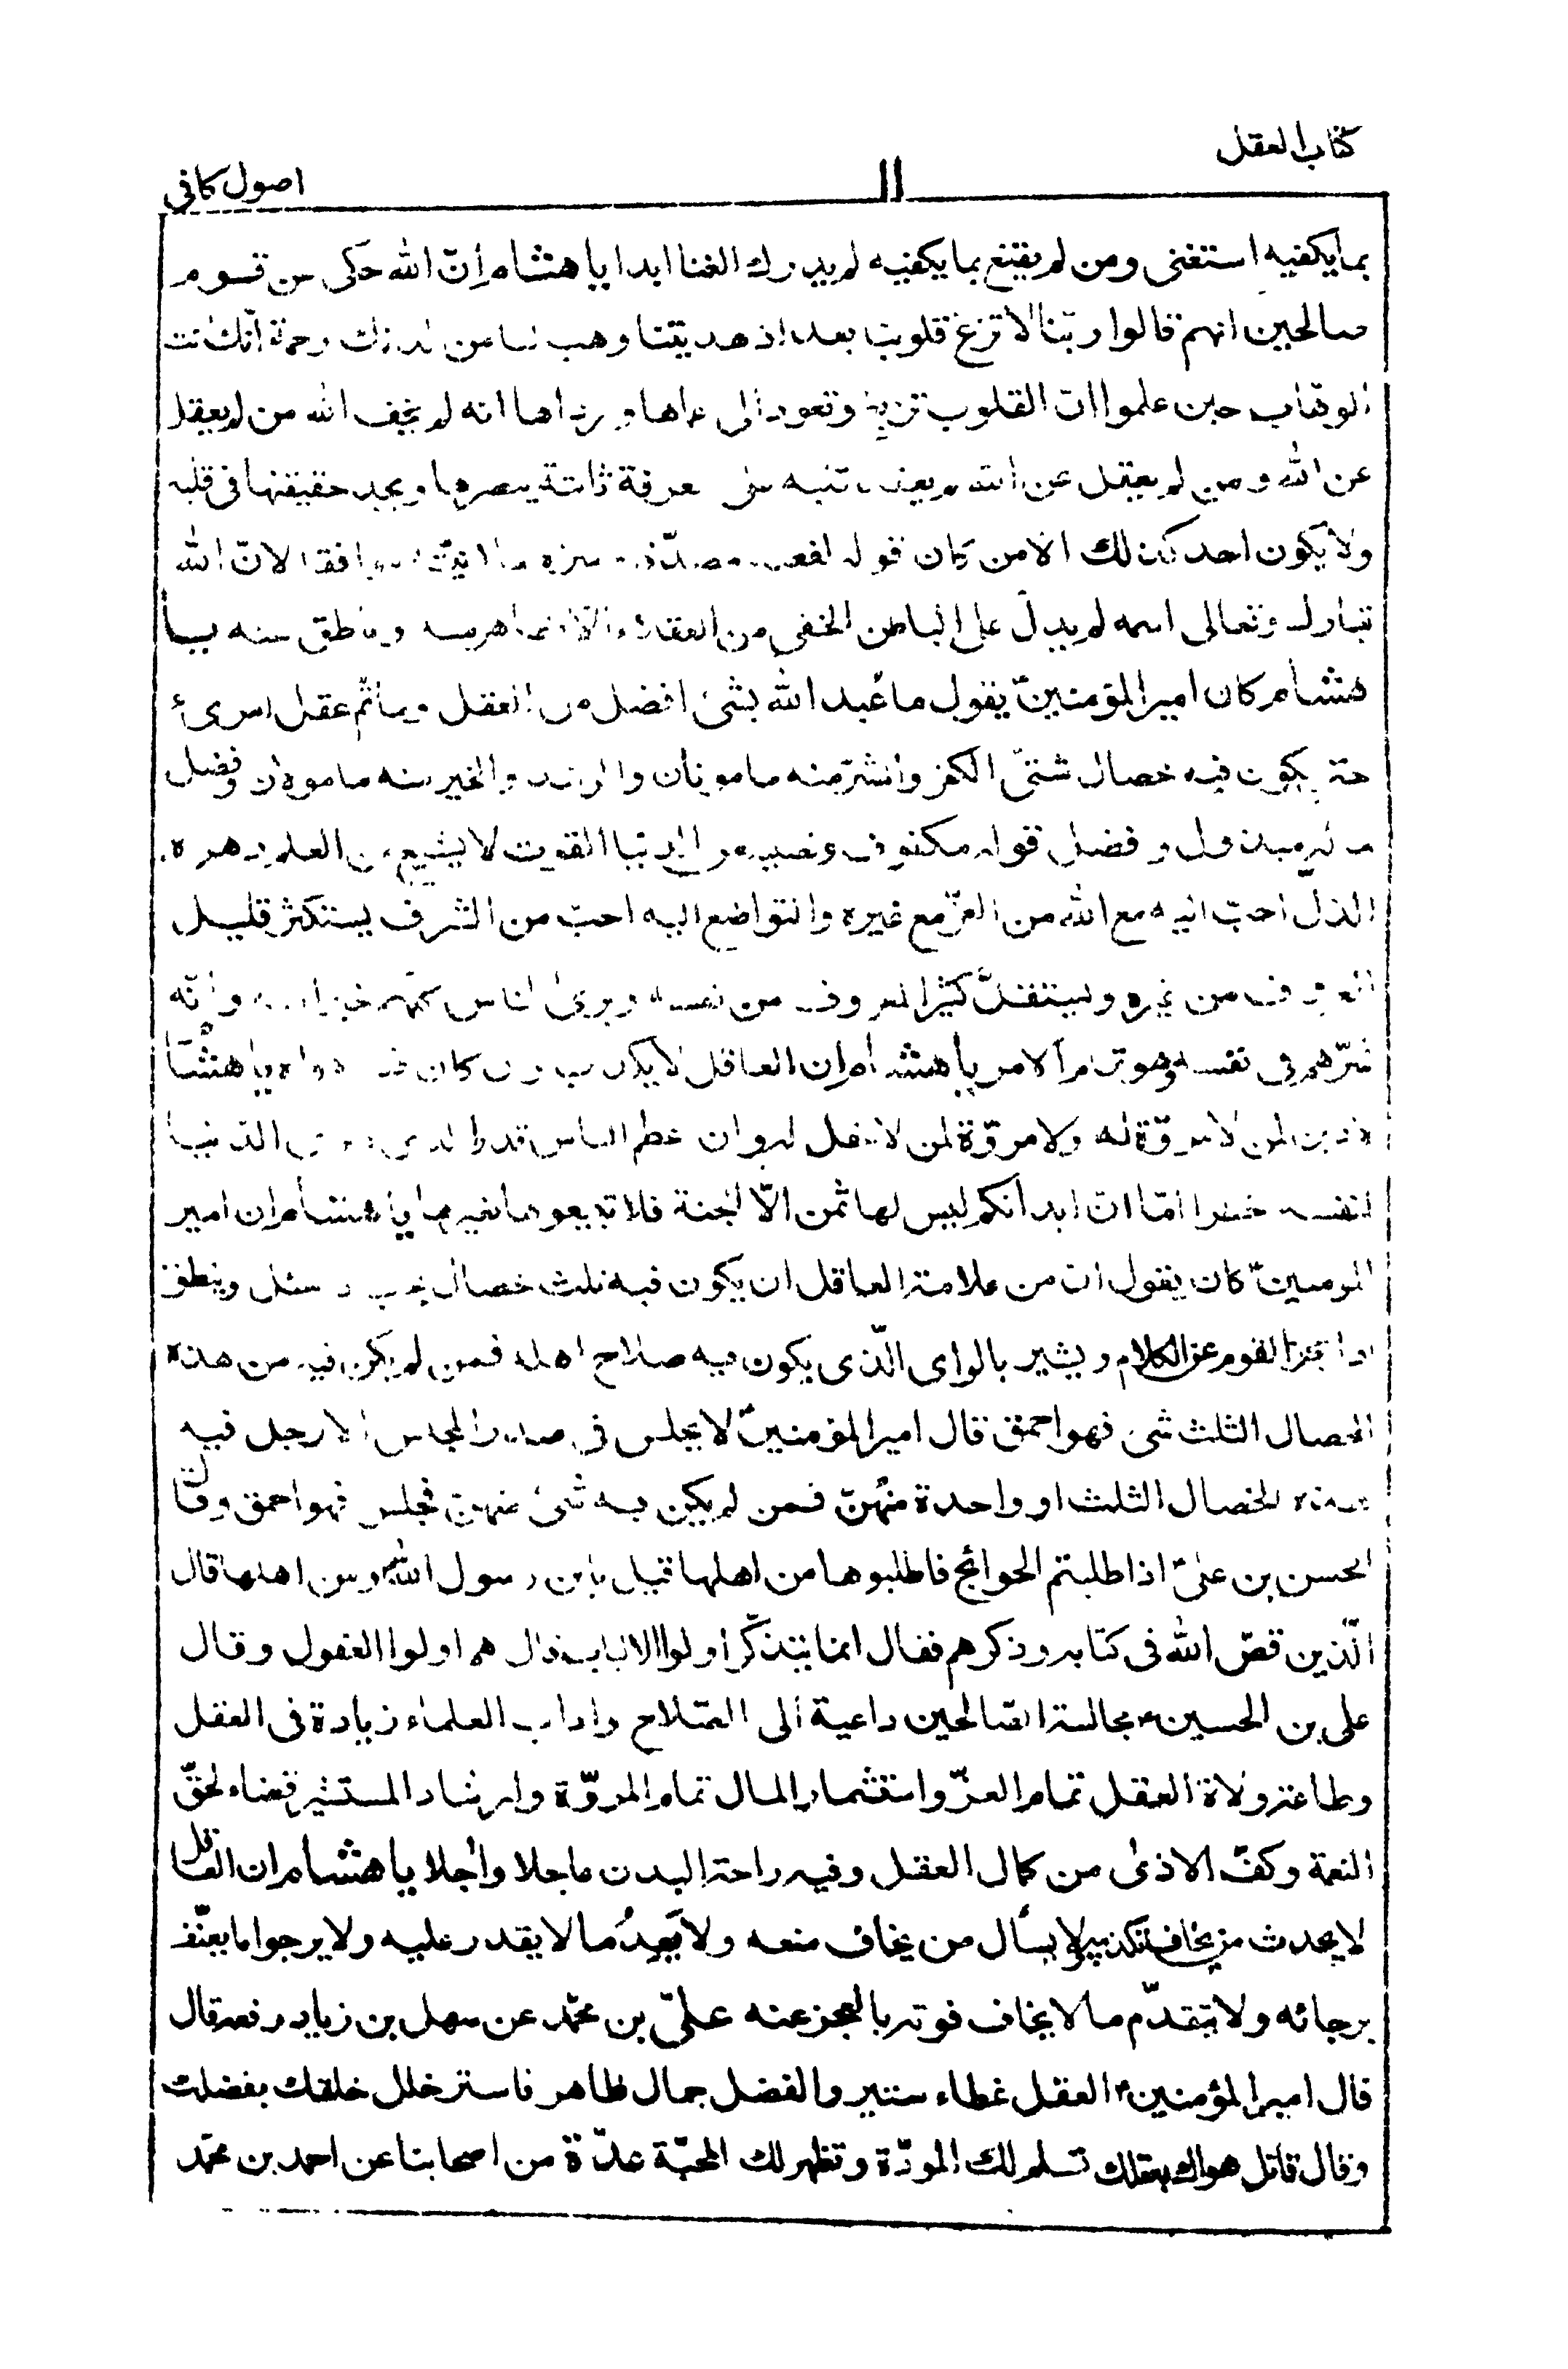 كتاب العقل
١١
اصول كافى
بما يكفيه استغنى ومن لم يقنع بما يكفيه لم يدرك الغنا ابدا يا هشام إنّ الله حكى عن قوم
صالحين انهم قالوا ربّنا لا تزغ قلوبنا بعد اذ هديتنا وهب لنا من لدنك رحمة انّك انت
الوهّاب حين علموا انّ القلوب تزيغ وتعود الى عماها ورداها انه لم يخف الله من لم يعقل
عن الله ومن لم يعقل عن الله لم يعقد قلبه على معرفة ثابتة يبصرها ويجد حقيقتها فى قلبه
ولا يكون احد كذلك الا من كان قوله لفعله مصدّقا وسره لعلانيته موافقا لانّ الله
تبارك وتعالى اسمه لم يدلّ على الباطن الخفى من العقل الّا بظاهر منه وناطق عنه يا
هشام كان امير المؤمنينؑ يقول ما عُبد الله بشئ افضل من العقل وما تمّ عقل امرئ
حتى يكون فيه خصال شتىّ الكفر والشرّ منه مامونان والرشد والخير منه مامولان وفضل
ماله مبذول وفضل قوله مكفوف ونصيبه من الدنيا القوت لا يشبع من العلم دهره
الذلّ احبّ اليه مع الله من العزّ مع غيره والتواضع اليه احبّ من الشرف يستكثر قليل
المعروف من غيره ويستقلّ كثير المعروف من نفسه ويرى الناس كلّهم خيرا منه وانّه
شرّهم فى نفسه وهو تمام الامر يا هشام ان العاقل لا يكذب وان كان فيه هواه يا هشا
م لا دين لمن لا مروّة له ولا مروّة لمن لا عقل له وان عظم الناس قدرا الذى لا يرى الدنيا
لنفسه خطرا امّا انّ ابدانكم ليس لها ثمن الّا الجنة فلا تبيعوها بغيرها يا هشام ان امير
المومنينؑ كان يقول ان من علامة العاقل ان يكون فيه ثلث خصال يجيب اذا سئل وينطق
اذا عجز القوم عن الكلام ويشير بالراى الّذى يكون فيه صلاح اهله فمن لم يكن فيه من هذه
الخصال الثلث شئ فهو احمق قال امير المؤمنينؑ لا يجلس فى صدر المجلس الا رجل فيه
هذه الخصال الثلث او واحدة منهُنّ فمن لم يكن فيه شئ منهن فجلس فهو احمق وقال
الحسن بن علىّؑ اذا طلبتم الحوائج فاطلبوها من اهلها قيل يا بن رسول الله ومن اهلها قال
الّذين قصّ الله فى كتابه وذكرهم فقال انما يتذكّر اولوا الالباب قال هم اولوا العقول وقال
على بن الحسينؑ مجالسة الصالحين داعية الى الصّلاح واداب العلماء زيادة فى العقل
وطاعة ولاة العقل تمام العزّ واستثمار المال تمام المروّة وارشاد المستشير قضاء لحقّ
النعمة وكفّ الاذىٰ من كمال العقل وفيه راحة البدن عاجلا واٰجلا يا هشام ان العاقل
لا يحدث من يخاف تكذيبه ولا يسأل من يخاف منعه ولا يَعِدُ ما لا يقدر عليه ولا يرجو ما يعنّف
برجائه ولا يتقدّم ما لا يخاف فوته بالعجز عنه علىّ بن محمّد عن سهل بن زياد رفعه قال
قال امير المؤمنينؑ العقل غطاء ستير والفضل جمال ظاهر فاستر خلل خلقك بفضلك
وقال قاتل هواك بعقلك تسلم لك المودّة وتظهر لك المحبّة عدّة من اصحابنا عن احمد بن محمّد